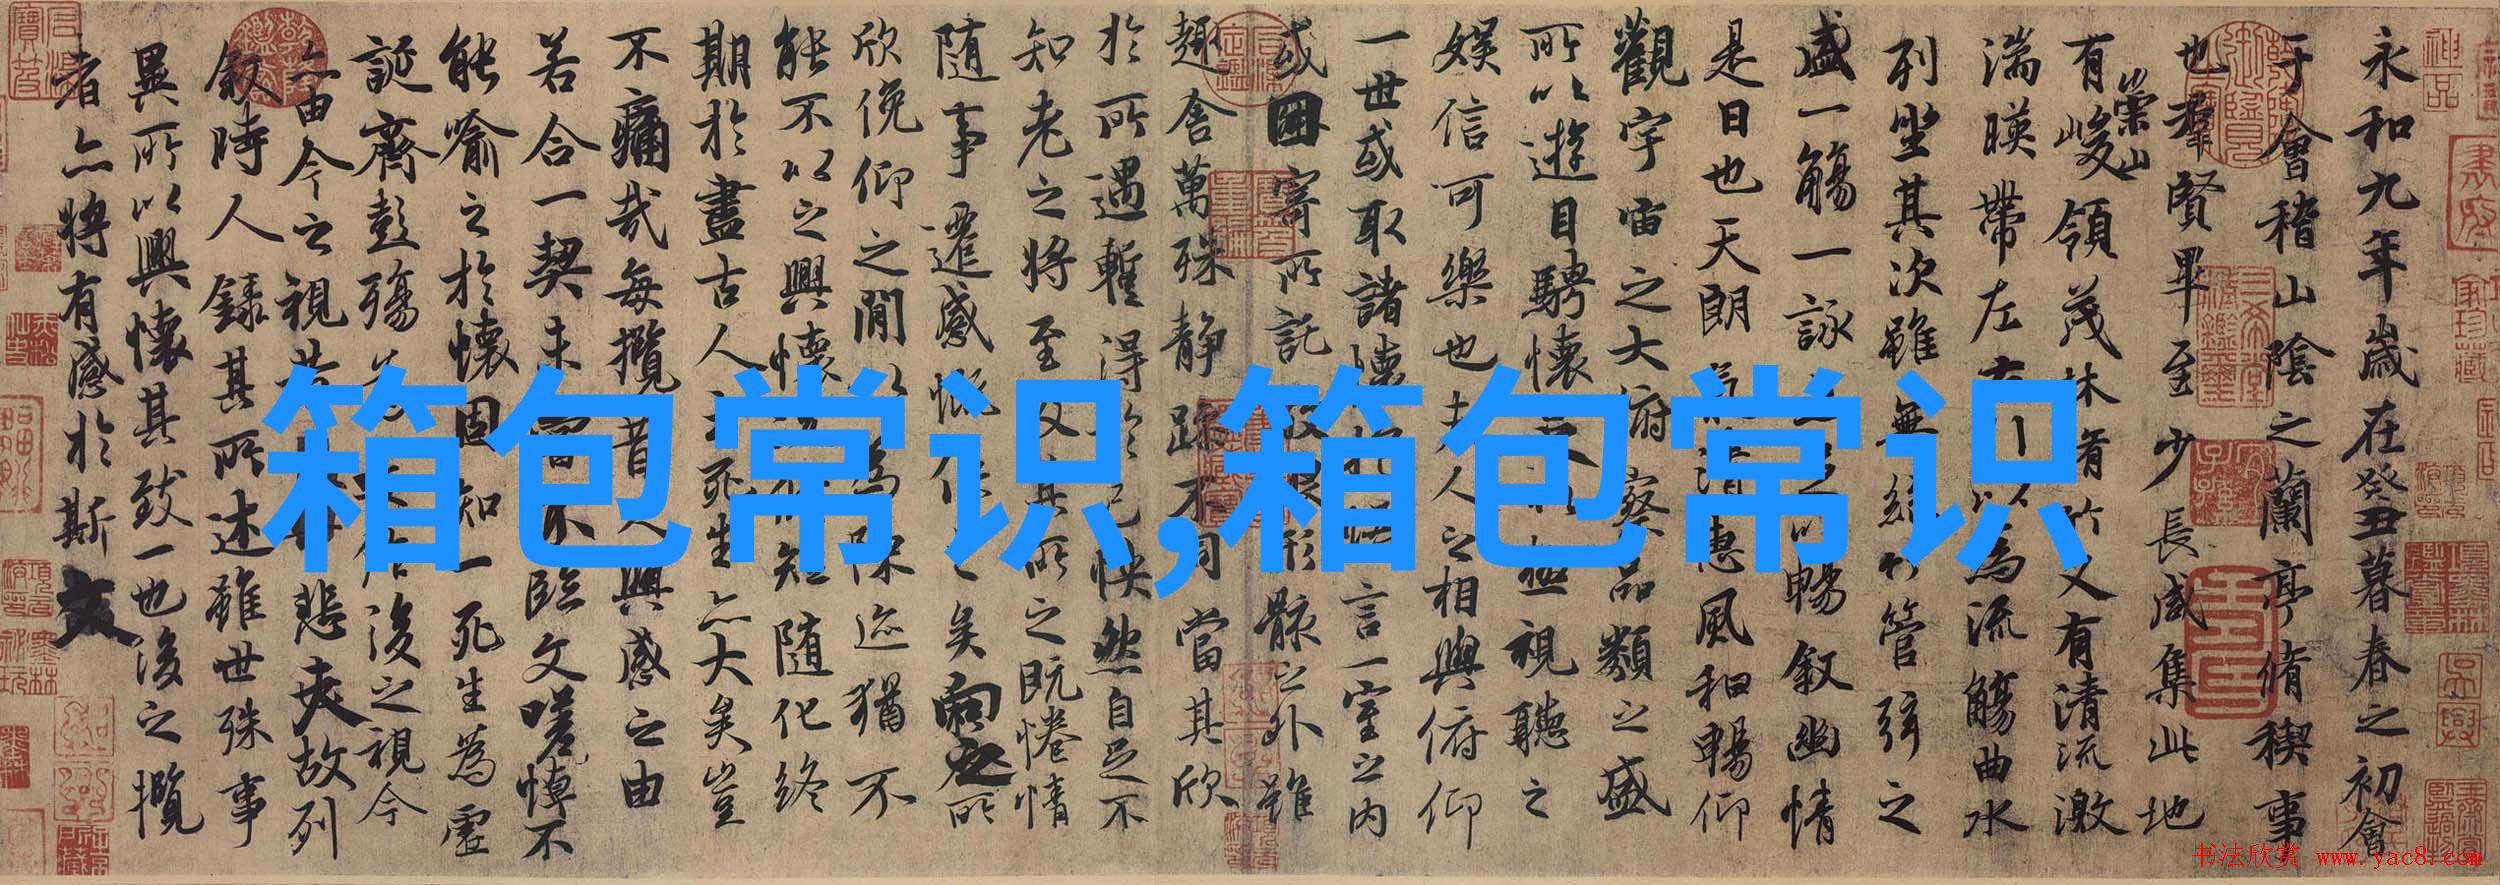 永和九年歲在癸丑暮春之初會
于會稽山陰之蘭亭脩稧事
也羣賢畢至少長咸集此地
有崇山峻領茂林脩竹又有清流激
湍暎帶左右以為流觴曲水
列坐其次雖無絲竹管弦之
盛一觴一詠亦足以暢叙幽情
是日也天朗氣清惠風和暢仰
觀宇宙之大俯察品類之盛
所以遊目騁懷足以極視聽之
娛信可樂也夫人之相與俯仰
一世或取諸懷抱悟言一室之內
或因寄所託放浪形骸之外雖
趣舍萬殊静躁不同當其欣
於所遇暫得於己怏然自足不
知老之將至及其所之既惓情
随事遷感慨係之矣向之所
欣俛仰之閒以為陳迹猶不
能不以之興懷況脩短随化終
期於盡古人云死生亦大矣豈
不痛哉每攬昔人興感之由
若合一契未嘗不臨文嗟悼不
能喻之於懷固知一死生為虛
誕齊彭殤為妄作後之視今
亦由今之視昔悲夫故列
叙時人錄其所述雖世殊事
異所以興懷其致一也後之攬
者亦將有感於斯文
箱包常识,箱包常识
书法欣赏 www.yac8.com